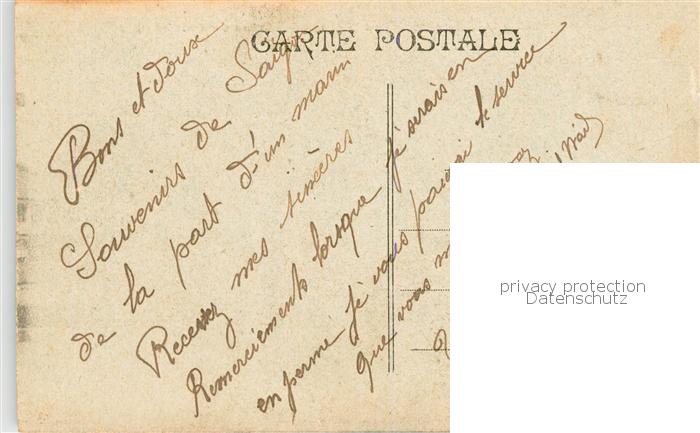 CARTE POSTALE
Bons et doux
Souvenirs de Saigon
de la part d'un marin
Recevez mes sincères
Remerciements lorsque je serais en
en perme je vous paierai le service
que vous m
privacy protection
Datenschutz